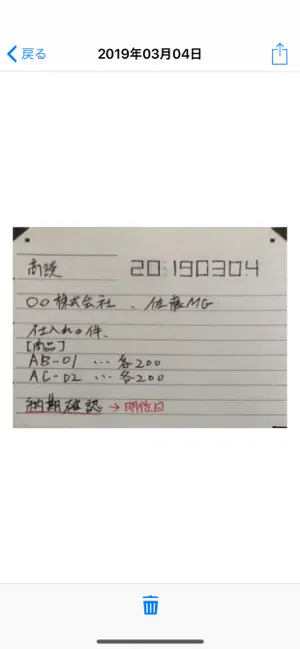 戻る
2019年03月04日
商談
20190304
〇〇株式会社、佐藤MG
仕入れの件、
[商品]
AB-01 … 各200
AC-02 … 各200
納期確認 →明後日